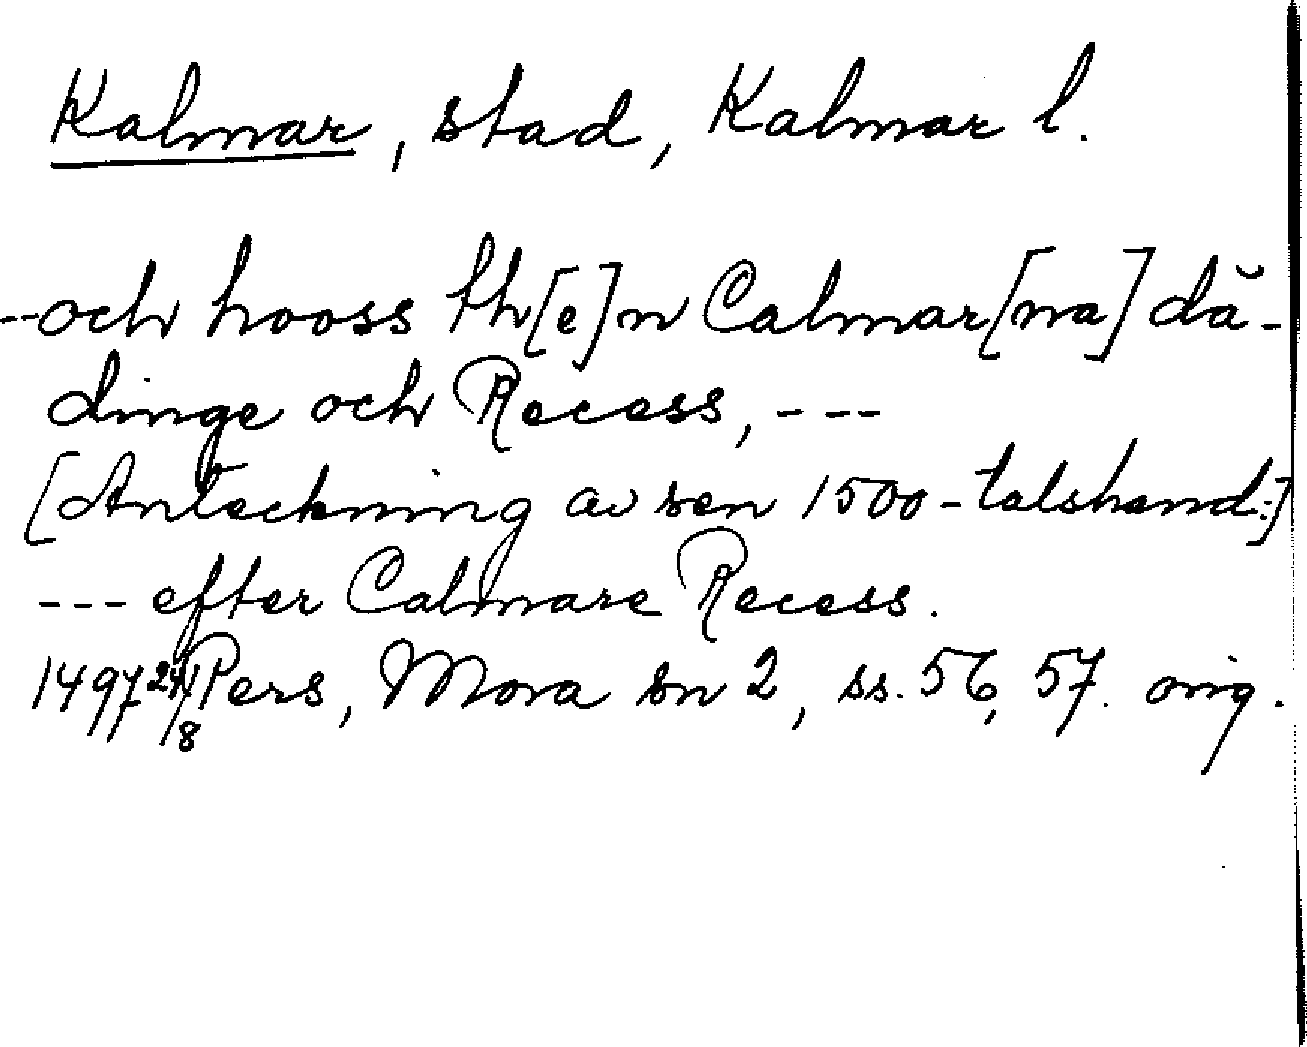 Kalmar, stad, Kalmar l.
--och hooss th[e]n Calmar[na] dă-
dinge och Recess, ---
[Anteckning av sen 1500-talshand:]
--- efter Calmare Recess.
1497 24/8 Pers, Mora sn 2, ss. 56, 57. orig.